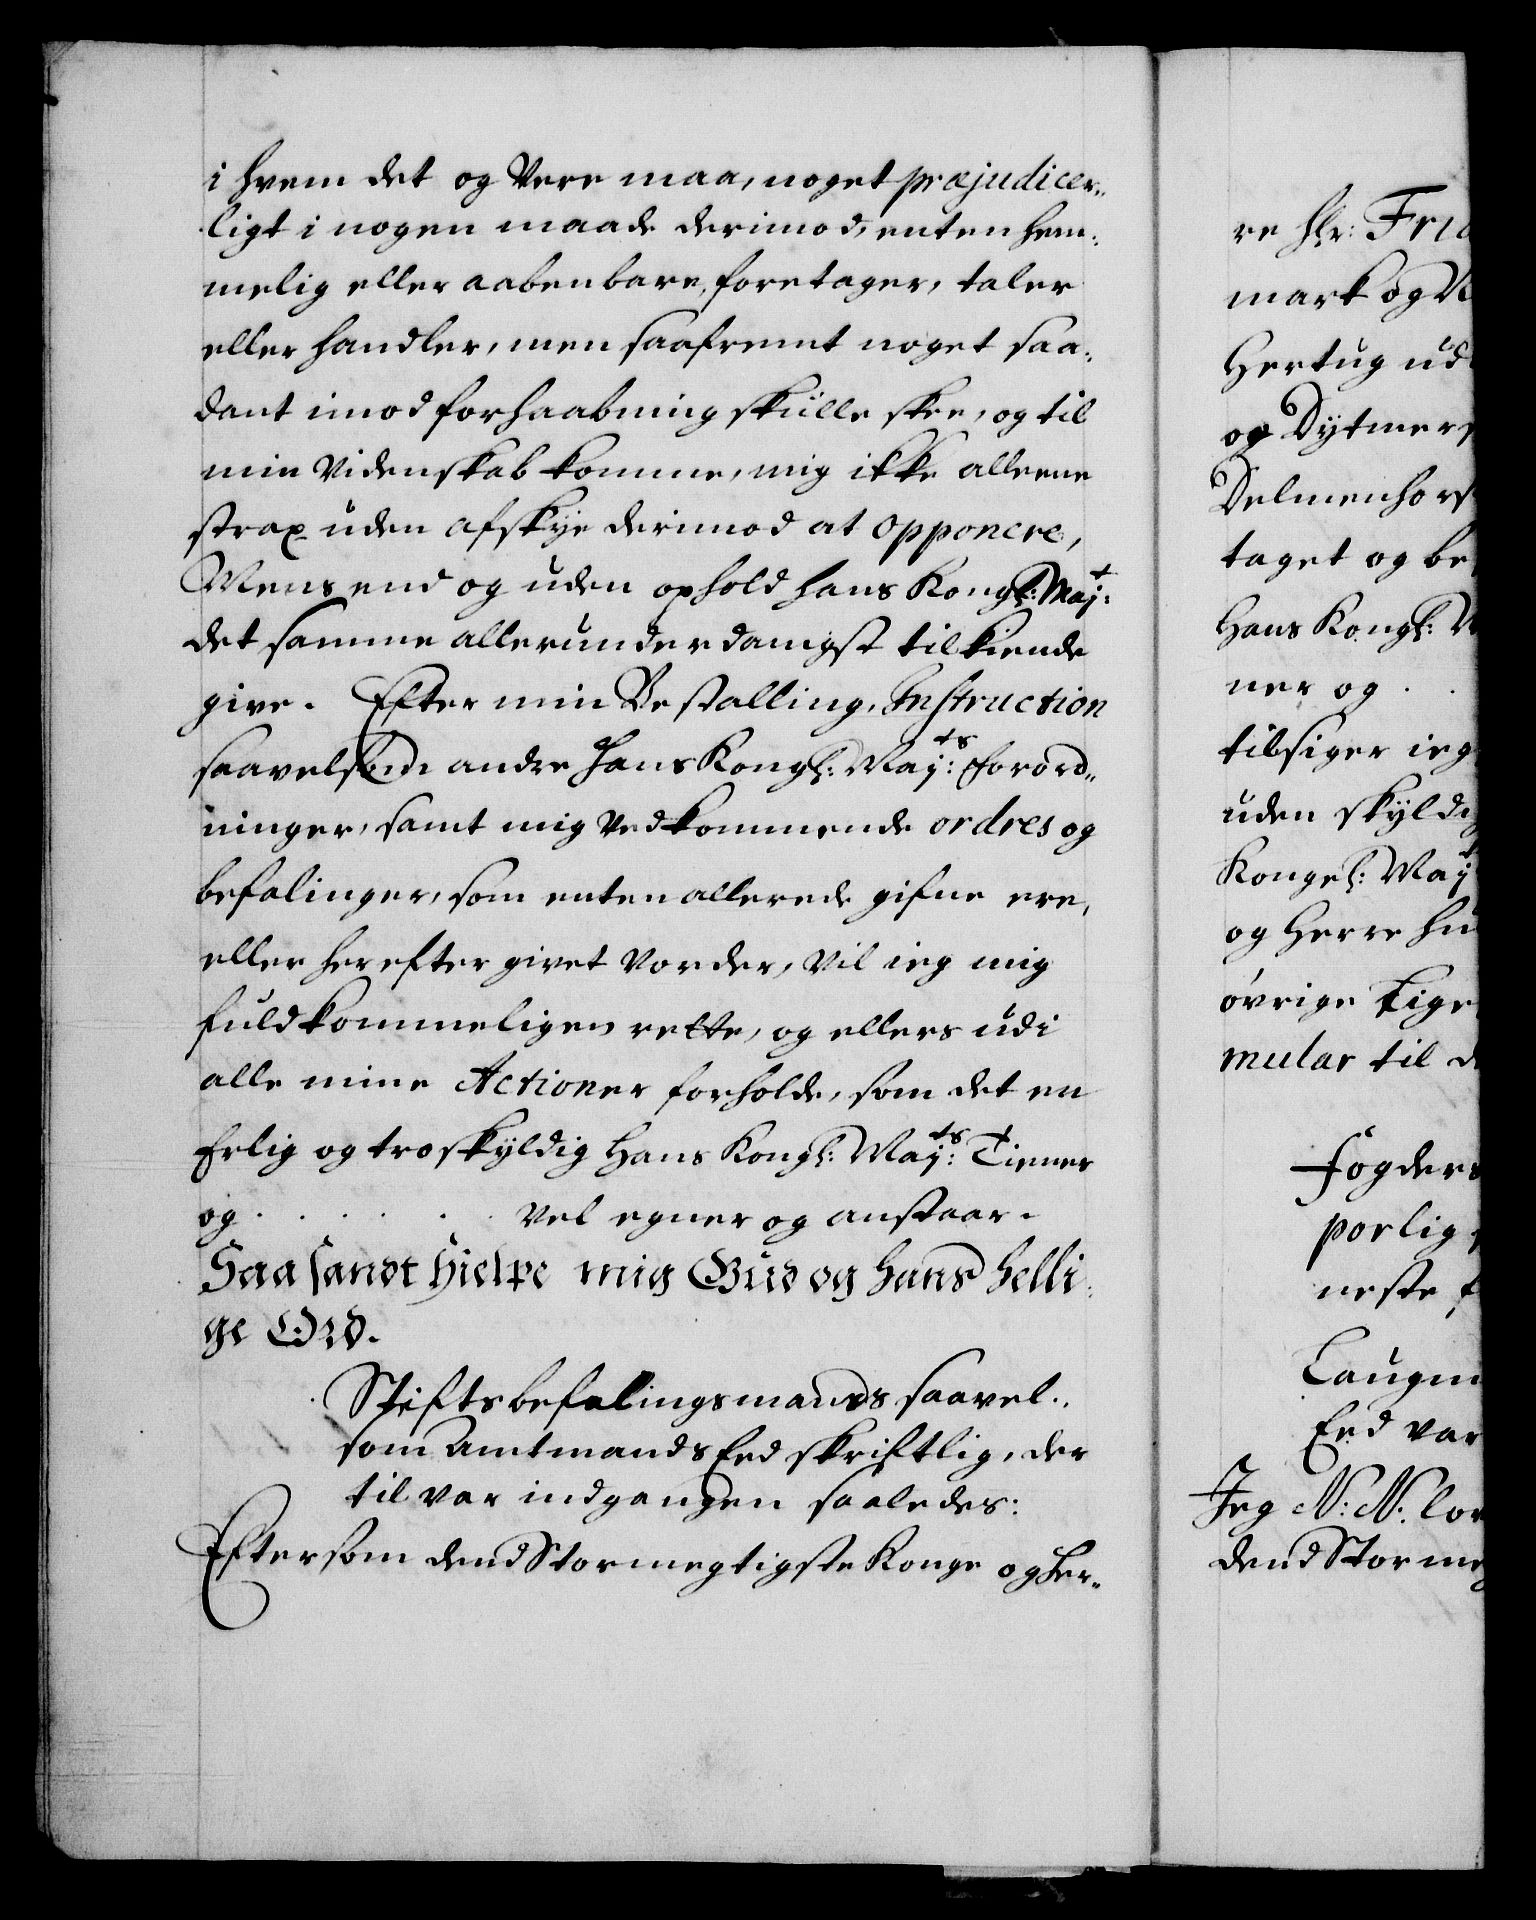 i hvem det og Vere maa, noget præjudicer„
ligt i nogen maade derimod, enten hem„
melig eller aabenbare, foretager, taler
eller handler, men saafremt noget saa„
dant imod forhaabning skulle skee, og til
min Videnskab komme, mig ikke alleene
strax uden afskye derimod at opponere,
Mens end og uden ophold hans Kongl: Majt:
det samme allerunderdanigst tilkiende
give. Efter min Bestalling, Instruction
saavelsom andre Hans Kongl: Majts: Forord„
ninger, samt mig Vedkommende ordres og
befalinger, som enten allerede gifne ere,
eller herefter givet Vorder, Vil ieg mig
fuldkommeligen rette, og ellers udi
alle mine Actioner forholde, som det en
Erlig og troskyldig Hans Kongl: Majts: Tiener
og . . . . . . Vel egner og anstaar.
Saa sandt hielpe mig Gud og hans helli„
ge Ord.
Stiftsbefalingsmands saavel„
som Amtmands Eed skriftlig, der
til var indgangen saaledes:
Eftersom dend Stormegtigste Konge og Her„
re Hr: Frid
mark og N
Hertug ud
og Dytmers
Delmenhors
taget og be
Hans Kongl: M
ner og . .
tilsiger ieg
uden skyldig
Kongel: Majt
og Herre hu
øvrige Lige
mular til d
Fogders
porlig
neste f
Laugm
Eed var
Jeg N: N. lov
dend Storme